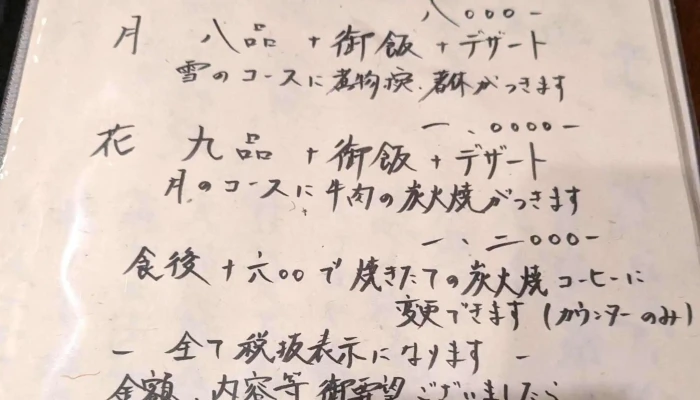 八〇〇〇-
月 八品+御飯+デザート
雪のコースに煮物椀、がつきます
一、〇〇〇〇-
花 九品+御飯+デザート
月のコースに牛肉の炭火焼がつきます
一、二〇〇〇-
食後+六〇〇で焼きたての炭火焼コーヒーに
変更できます(カウンターのみ)
- 全て税抜表示になります -
金額、内容等御要望ございましたら